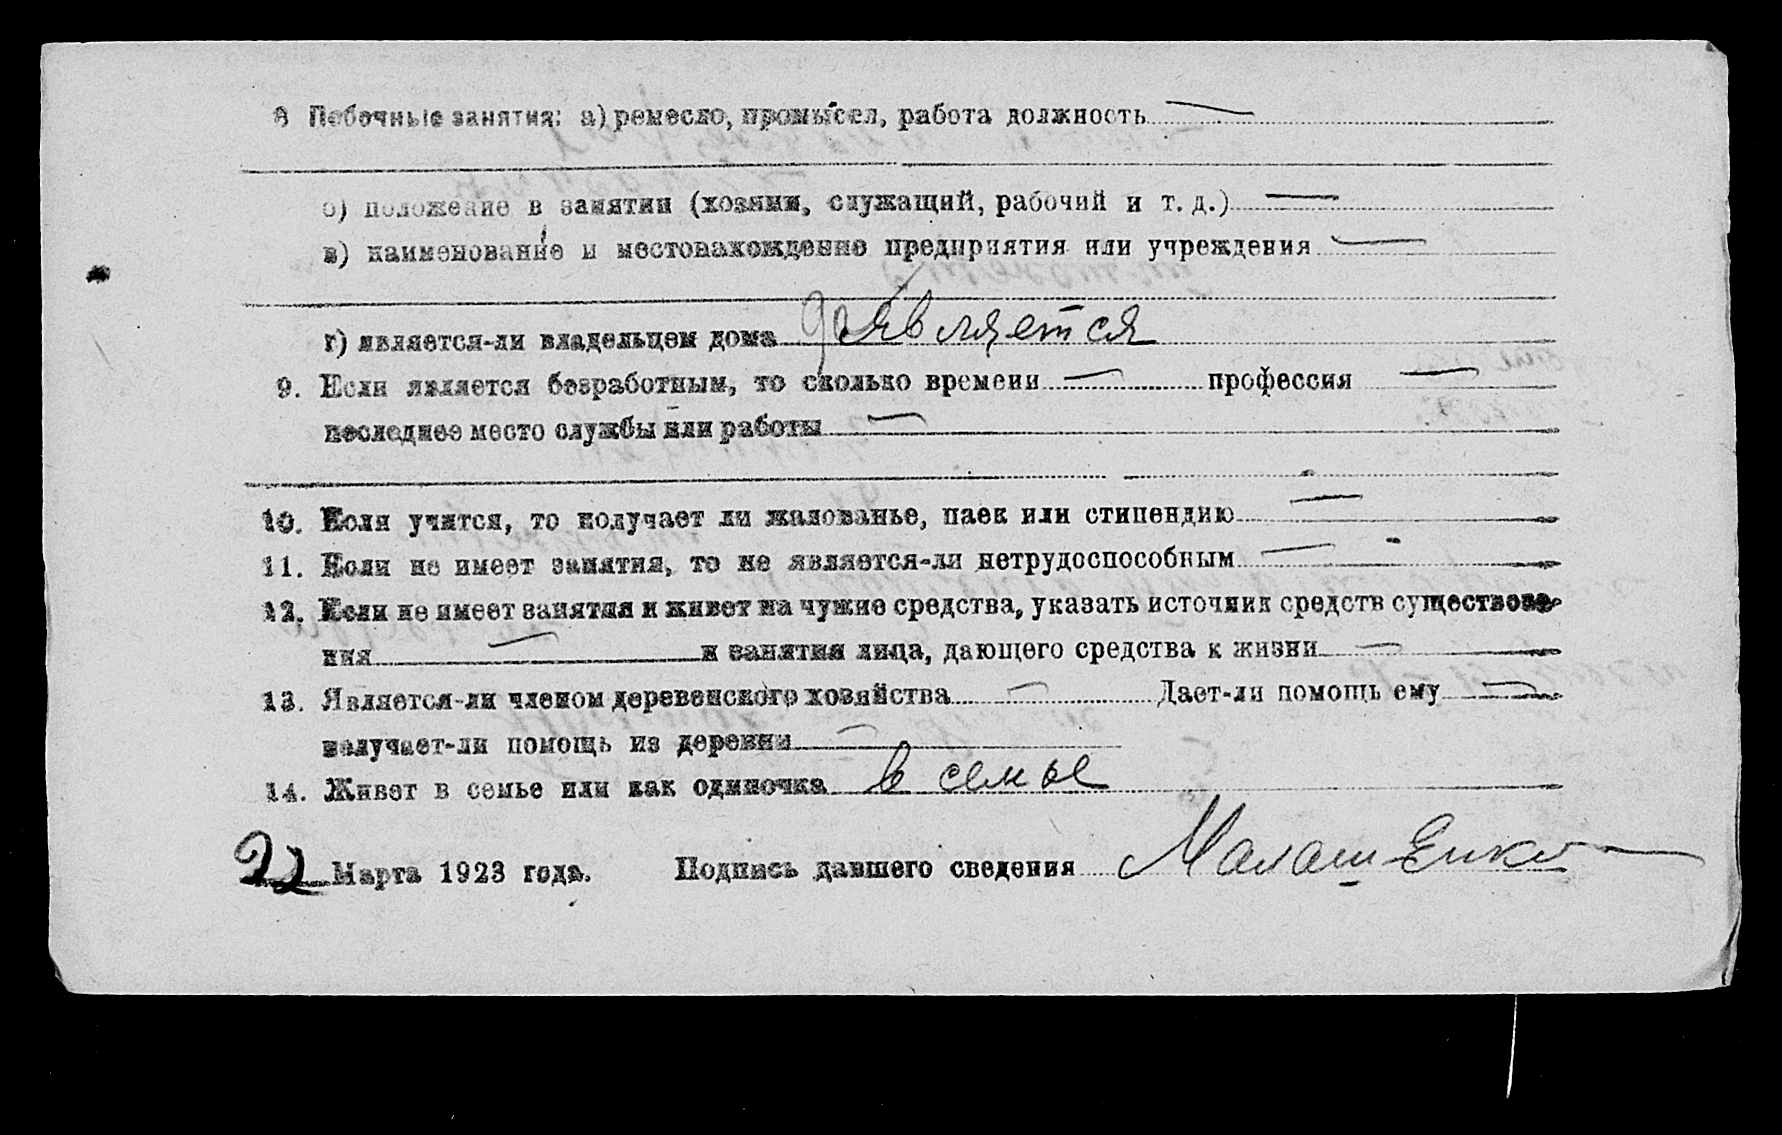 8 Побочные занятия: а) ремесло, промысел, работа должность —
б) положение в занятии (хозяин, служащий, рабочий и т. д.) —
в) наименование и местонахождение предприятия или учреждения —
г) является-ли владельцем дома является
9. Если является безработным, то сколько времени — профессия —
последнее место службы или работы —
10. Если учится, то получает ли жалованье, паек или стипендию —
11. Если не имеет занятия, то не является-ли нетрудоспособным —
12. Если не имеет занятия и живет на чужие средства, указать источник средств существова-
ния — и занятия лица, дающего средства к жизни —
13. Является-ли членом деревенского хозяйства — Дает-ли помощь ему —
получает-ли помощь из деревни —
14. Живет в семье или как одиночка в семье
22 Марта 1923 года. Подпись давшего сведения Малашенко